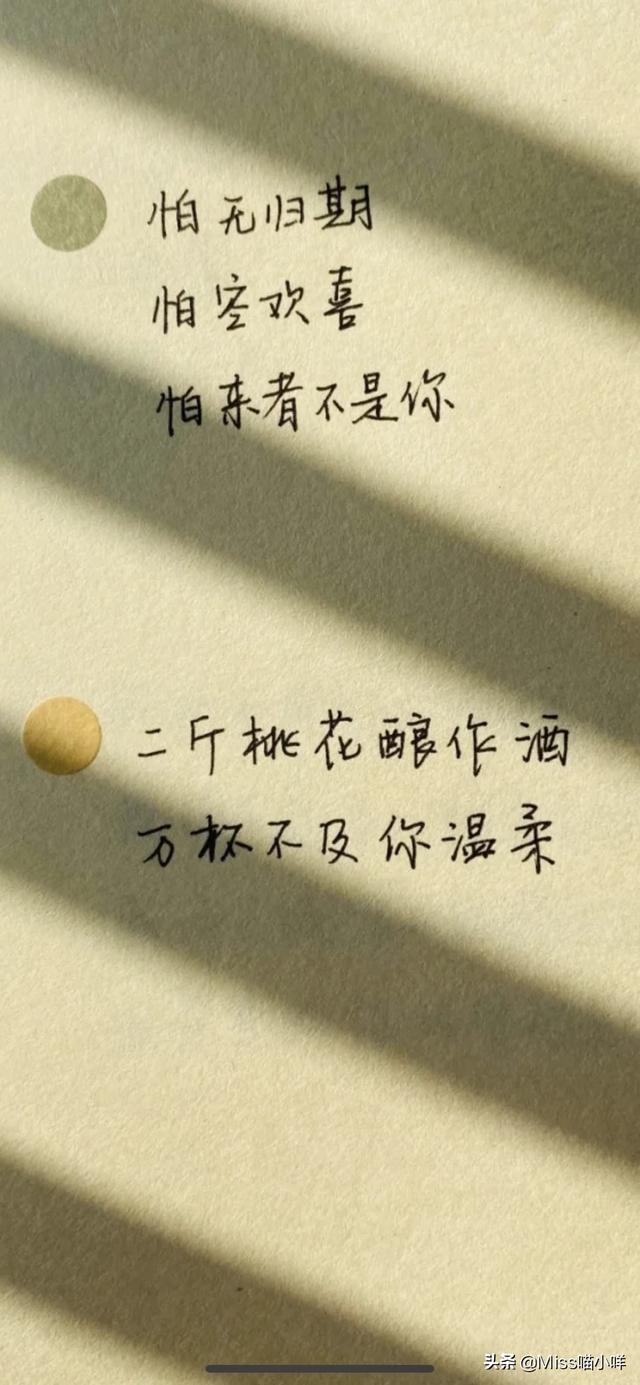 怕无归期
怕空欢喜
怕来者不是你
二斤桃花酿作酒
万杯不及你温柔
头条 @Miss喵小咩